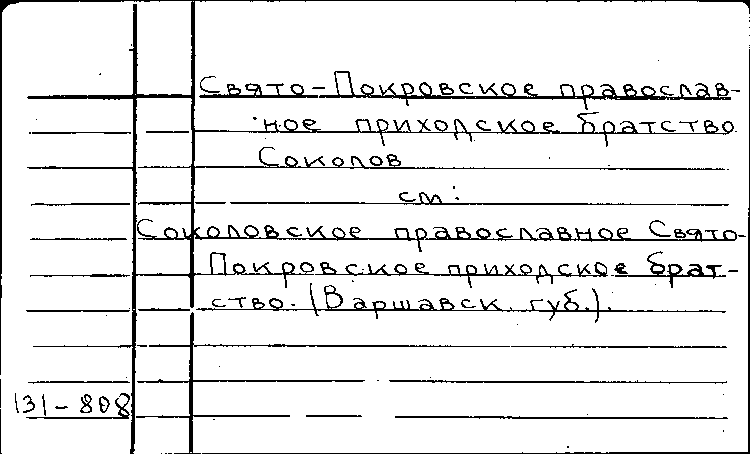 Свято-Покровское православ-
ное приходское братство
Соколов
см:
Соколовское православное Свято-
Покровское приходское брат-
ство. (Варшавск. губ.).
131-808